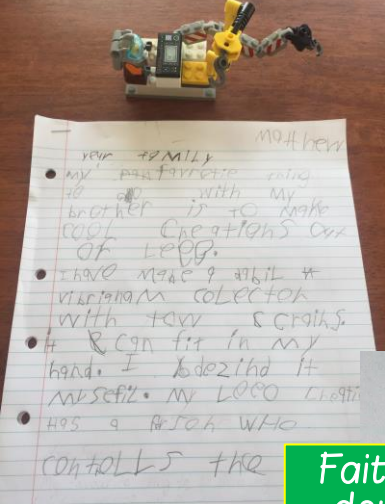 Matthew
your family
my favrotie thing
to do with my
brother is to make
cool Creations out
of Lego.
I have made a
vibrianam colector
with tow Crains.
it can fit in my
hand. I dezind it
my sefil. My LEGO Creati
Has a Person WHO
contolls the
Fait